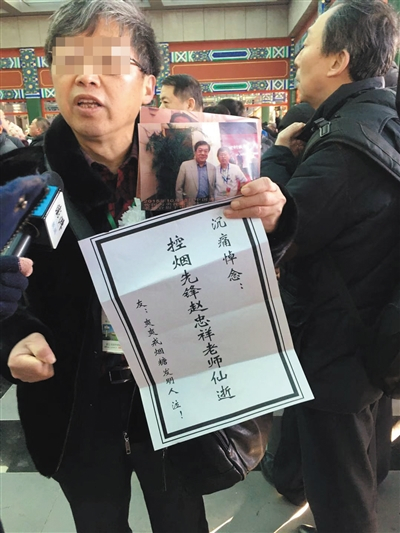 沉痛悼念：
控烟先锋赵忠祥老师仙逝
友：
戒烟糖发明人
泣！